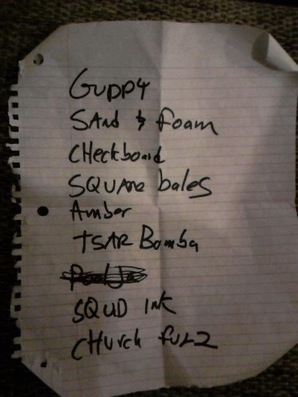 Guppy
SAnd & foam
CHeckboard
SQUARe bales
Amber
TSAR Bomba
SQUD INK
CHURCH fuzz